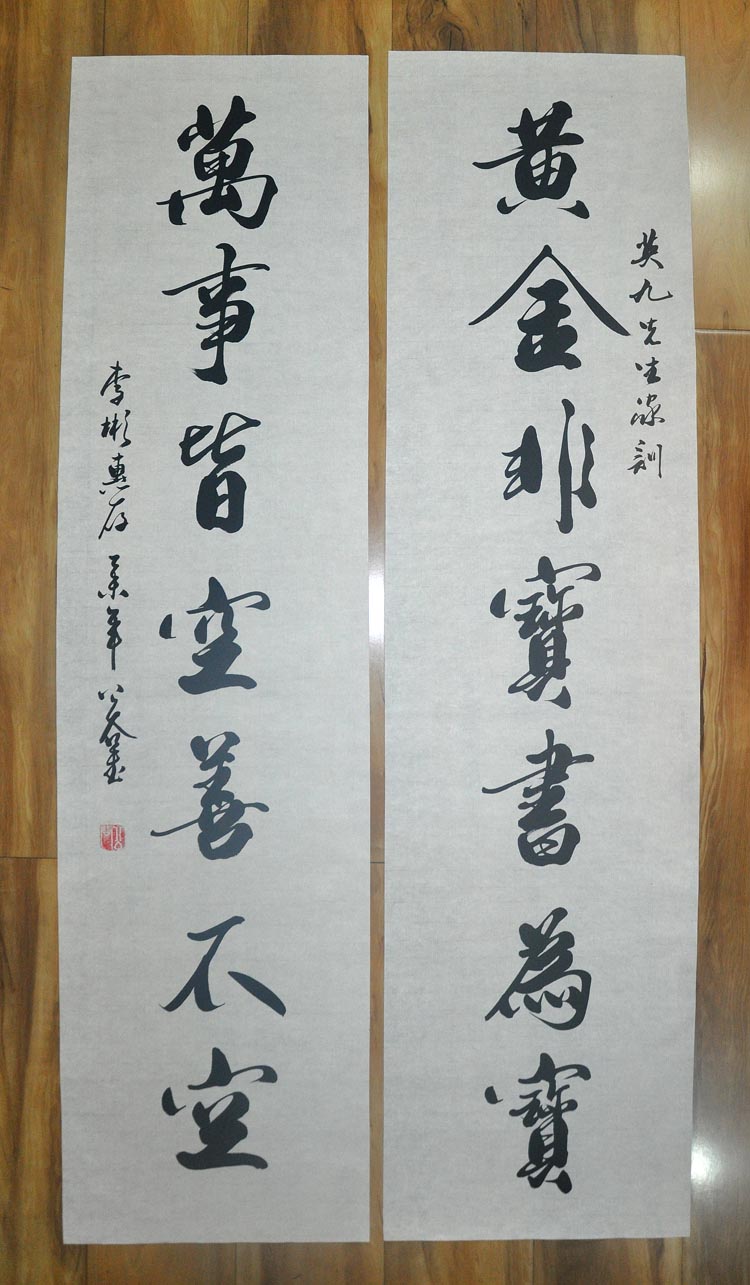 黃金非寶書為寶
英九先生家訓
萬事皆空善不空
李彬惠存